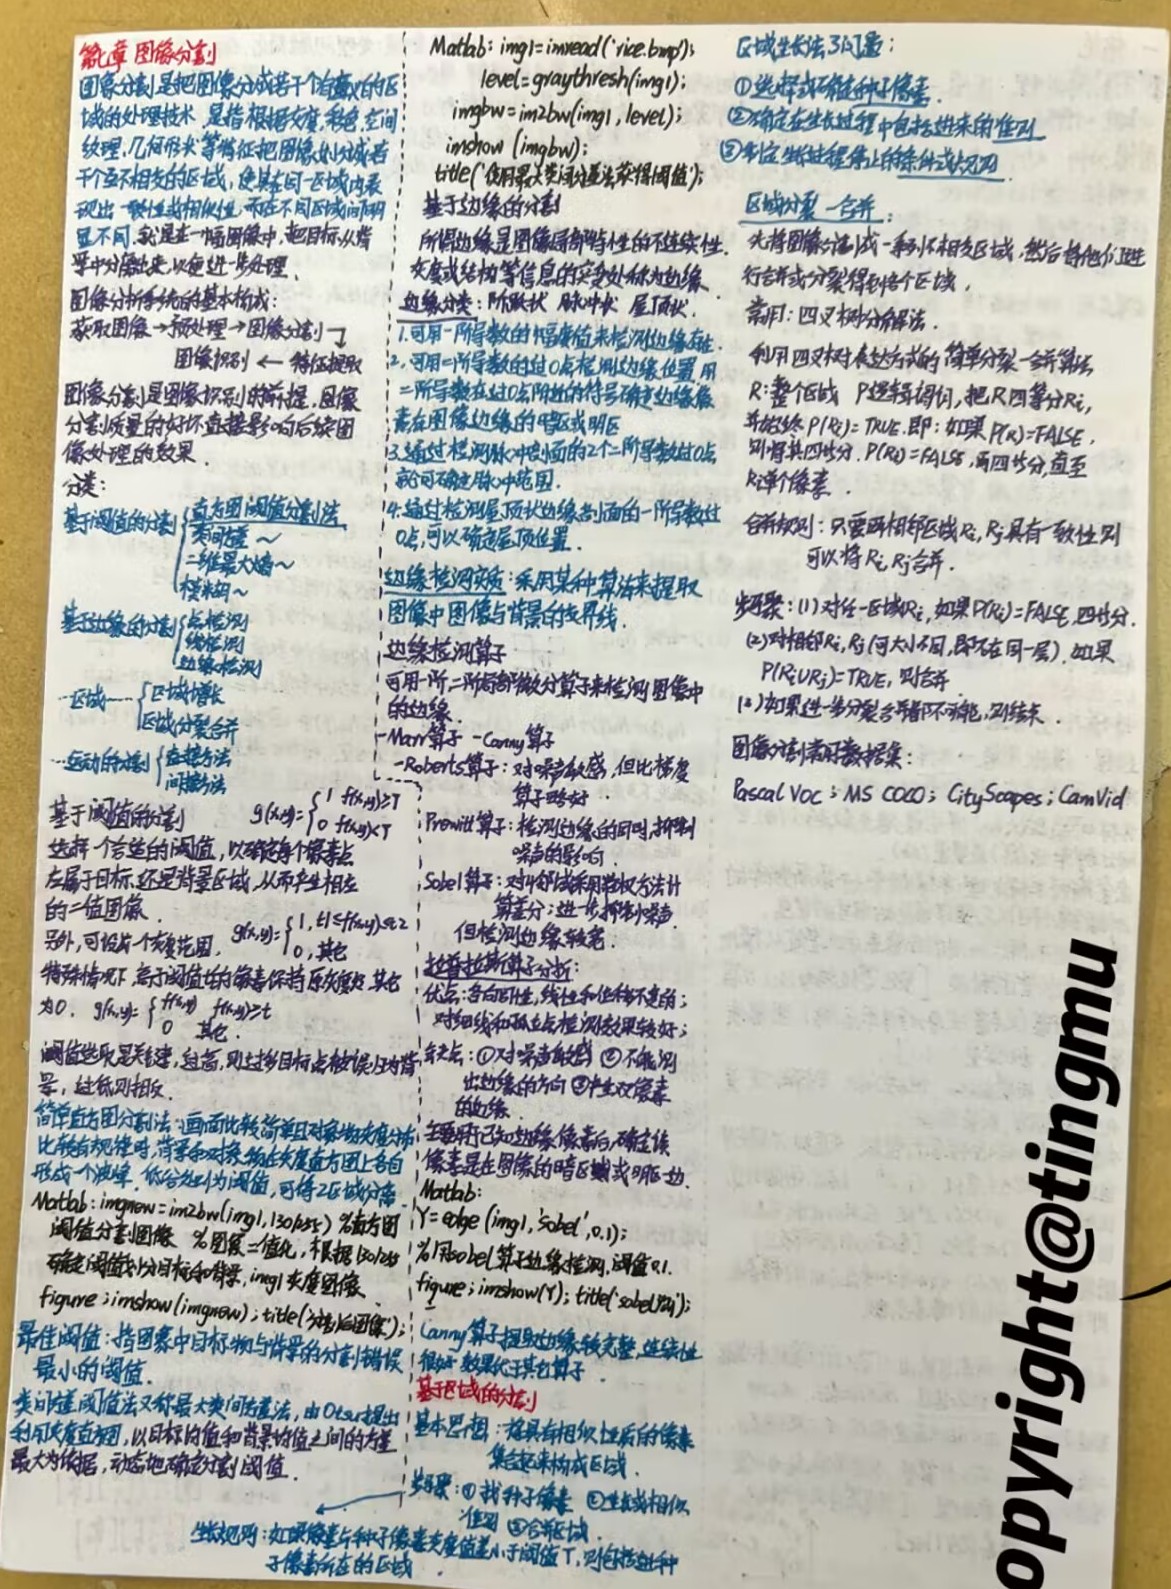 第七章 图像分割
图像分割是把图像分成若干个有意义的区
域的处理技术,是指根据灰度,彩色,空间
纹理,几何形状等特征把图像划分成若
干个互不相交的区域,使其在同一区域内表
现出一致性或相似性,而在不同区域间明
显不同,就是在一幅图像中,把目标从背
景中分离出来,以便进一步处理.
图像分析系统的基本构成:
获取图像→预处理→图像分割
图像识别←特征提取
图像分割是图像识别的前提,图像
分割质量的好坏直接影响后续图
像处理的效果.
分类:
基于阈值的分割
直方图阈值分割法
类间方差~
二维最大熵~
模糊~
基于边缘的分割
点检测
线检测
边缘检测
…区域……
区域增长
区域分裂合并
…运动的分割
直接方法
间接方法
基于阈值的分割 g(x,y)={1 f(x,y)≥T
0 f(x,y)<T
选择一个合适的阈值,以确定每个像素点
在属于目标,还是背景区域,从而产生相应
的二值图像.
另外,可设为一个灰度范围. g(x,y)={1, t1≤f(x,y)≤t2
0,其它
特殊情况下,高于阈值t的像素保持原灰度级,其它
为0. g(x,y)={f(x,y) f(x,y)≥t
0 其它.
阈值选取是关键,过高,则过多目标点被误归为背
景,过低则相反.
简单直方图分割法:画面比较简单且对象物灰度分布
比较有规律时,背景和对象物在灰度直方图上各自
形成一个波峰,低谷处则为阈值,可将2区域分离
Matlab:imgnew=im2bw(img1,130/255) %直方图
阈值分割图像 %图像二值化,根据130/255
确定阈值划分目标和背景,img1灰度图像
figure;imshow(imgnew);title('分割后图像');
最佳阈值:指图象中目标物与背景的分割错误
最小的阈值.
类间方差阈值法又称最大类间方差法,由Otsu提出
利用灰度直方图,以目标均值和背景均值之间的方差
最大为依据,动态地确定分割阈值.
Matlab:img1=imread('rice.bmp');
level=graythresh(img1);
imgbw=im2bw(img1,level);
imshow(imgbw);
title('使用最大类间方差法获得阈值');
基于边缘的分割
所谓边缘是图像局部特性的不连续性.
灰度或结构等信息的突变处称为边缘
边缘分类:阶跃状 脉冲状 屋顶状.
1.可用一阶导数的幅度值来检测边缘存在.
2.可用二阶导数的过0点检测边缘位置,用
二阶导数在过0点附近的符号确定边缘像
素在图像边缘的暗区或明区
3.通过检测脉冲剖面的2个二阶导数过0点
就可确定脉冲范围.
4.通过检测屋顶状边缘剖面的一阶导数过
0点,可以确定屋顶位置.
边缘检测实质:采用某种算法来提取
图像中图像与背景的交界线.
边缘检测算子
可用一阶,二阶局部微分算子来检测图像中
的边缘.
-Marr算子 -Canny算子
-Roberts算子:对噪声敏感,但比梯度
算子略好
Prewitt算子:检测边缘的同时,抑制
噪声的影响.
Sobel算子:对4邻域采用带权方法计
算差分;进一步抑制噪声.
但检测边缘较宽.
拉普拉斯算子分析:
优点:各向同性,线性和位移不变的;
对细线和孤立点检测效果较好;
缺点:①对噪声敏感 ②不能测
出边缘的方向③产生双像素
的边缘.
主要用于已知边缘像素后,确定该
像素是在图像的暗区域或明区边.
Matlab:
Y=edge(img1,'sobel',0.1);
%用sobel算子边缘检测,阈值0.1.
figure;imshow(Y);title('sobel');
Canny算子提取边缘较完整,连续性
很好,效果优于其它算子.
基于区域的分割
基本思想:将具有相似性质的像素
集合起来构成区域.
步骤:①找种子像素 ②生长或相似
准则 ③合并区域.
生长规则:如果像素与种子像素灰度值差小于阈值T,则包括进种
子像素所在的区域.
区域生长法3问题:
①选择或确定种子像素.
②确定在生长过程中包括进来的准则
③制定生长过程停止的条件或规则.
区域分裂-合并:
先将图像分割成一系列不相交区域,然后将他们进
行合并或分裂得到各个区域.
常用:四叉树分解法.
利用四叉树表达方式的简单分裂-合并算法
R:整个区域 P逻辑谓词,把R四等分Ri,
并始终P(Ri)=TRUE.即:如果P(R)=FALSE,
则将其四等分.P(Ri)=FALSE,再四等分,直至
Ri单个像素.
合并规则:只要两相邻区域Ri,Rj具有一致性则
可以将Ri,Rj合并.
步骤:(1)对任一区域Ri,如果P(Ri)=FALSE,四等分.
(2)对相邻Ri,Rj(可大小不同,即不在同一层).如果
P(Ri∪Rj)=TRUE,则合并.
(3)如果进一步分裂合并都不可能,则结束.
图像分割常用数据集:
Pascal VOC;MS COCO;CityScapes;CamVid
opyright@tingmu